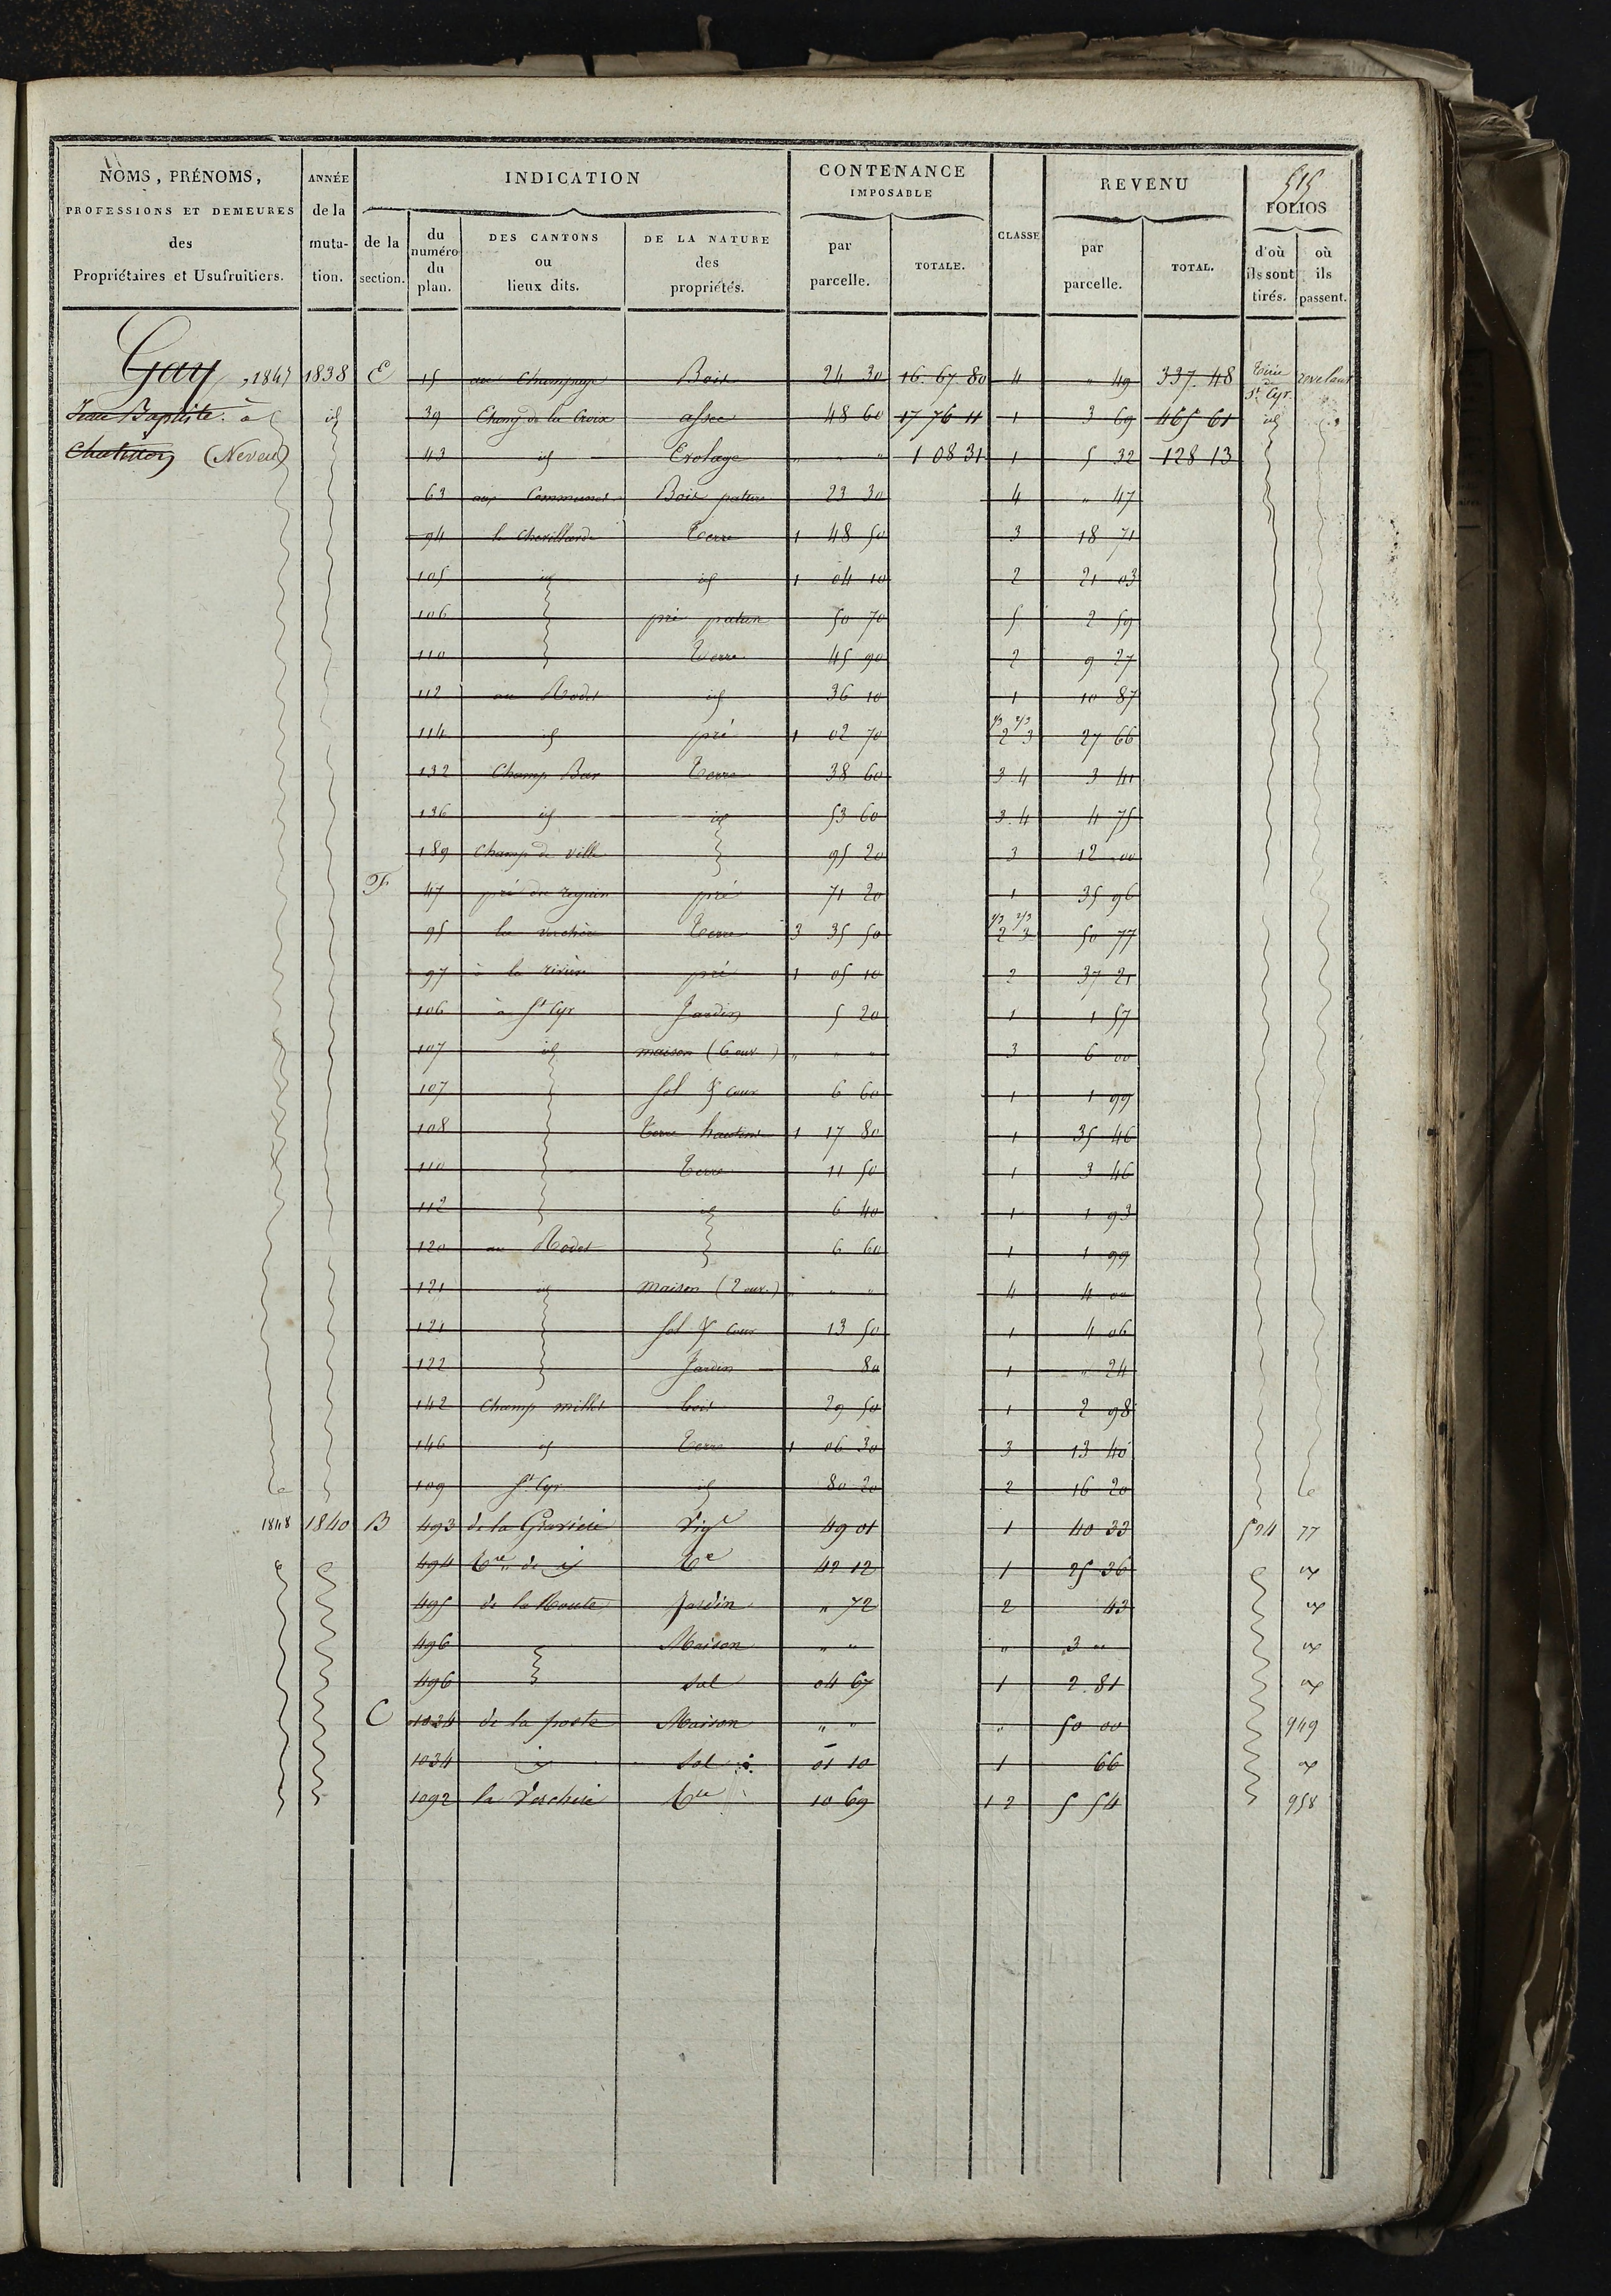 515
NOMS, PRÉNOMS, PROFESSIONS ET DEMEURES des Propriétaires et Usufruitiers.
ANNÉE de la muta-tion.
INDICATION
de la section.
du numéro du plan.
DES CANTONS ou lieux dits.
DE LA NATURE des propriétés.
CONTENANCE IMPOSABLE
par parcelle.
TOTALE.
CLASSE
REVENU
par parcelle.
TOTAL.
FOLIOS
d'où ils sont tirés.
où ils passent.
Gay, 1847 1838 E 15 au Champage Bois 24 30 16. 67. 80 4 " 49 337. 48 St Cyr
Jean Baptiste à id 39 Etang de la Croix assec 48 60 17 76 11 1 3 69 465 61 id
(Neveu) 43 id Evolage " " " 1 08 31 1 5 32 128 13
63 aux Communes Bois pature 23 30 4 " 47
94 la Chevillarde Terre 1 48 50 3 18 71
105 id id 1 04 10 2 21 03
106 pré pature 50 70 5 2 59
110 Terre 45 90 2 9 27
112 au Rodet id 36 10 1 10 87
114 id pré 1 02 70 1/3 2/3 2 3 27 66
132 Champ Bar Terre 38 60 3 4 3 41
136 id id 53 60 3. 4 4 75
189 Champ de ville 95 20 3 12 00
F 47 pré du pré 71 20 1 35 96
95 la Terre 3 35 50 1/3 2/3 2 3 50 77
97 à la rivière pré 1 05 10 2 37 21
106 à St Cyr Jardin 5 20 1 1 57
107 id maison (6 ouv.) " " " 3 6 00
107 Sol & cour 6 60 1 1 99
108 Terre hautins 1 17 80 1 35 46
110 Terre 11 50 1 3 46
112 id 6 40 1 1 93
120 au Rodet 6 60 1 1 99
121 id maison (2 ouv.) " " " 4 4 00
121 Sol & Cour 13 50 1 4 06
122 Jardin 80 1 " 24
142 Champ millet bois 29 50 1 2 98
146 id Terre 1 06 30 3 13 40
109 St Cyr id 80 20 2 16 20
1848 1840 B 493 de la Gravière Vige 49 01 1 40 33 524 77
494 Tre de id Te 42 12 1 25 36
495 de la Route Jardin " 72 2 43
496 Maison " " " 3 "
496 Sol 04 67 1 2. 81
C 1034 de la poste Maison " " " 50 00 949
1034 id Sol 01 10 1 66
1092 la Verchère Tre 10 69 1 2 5 54 958